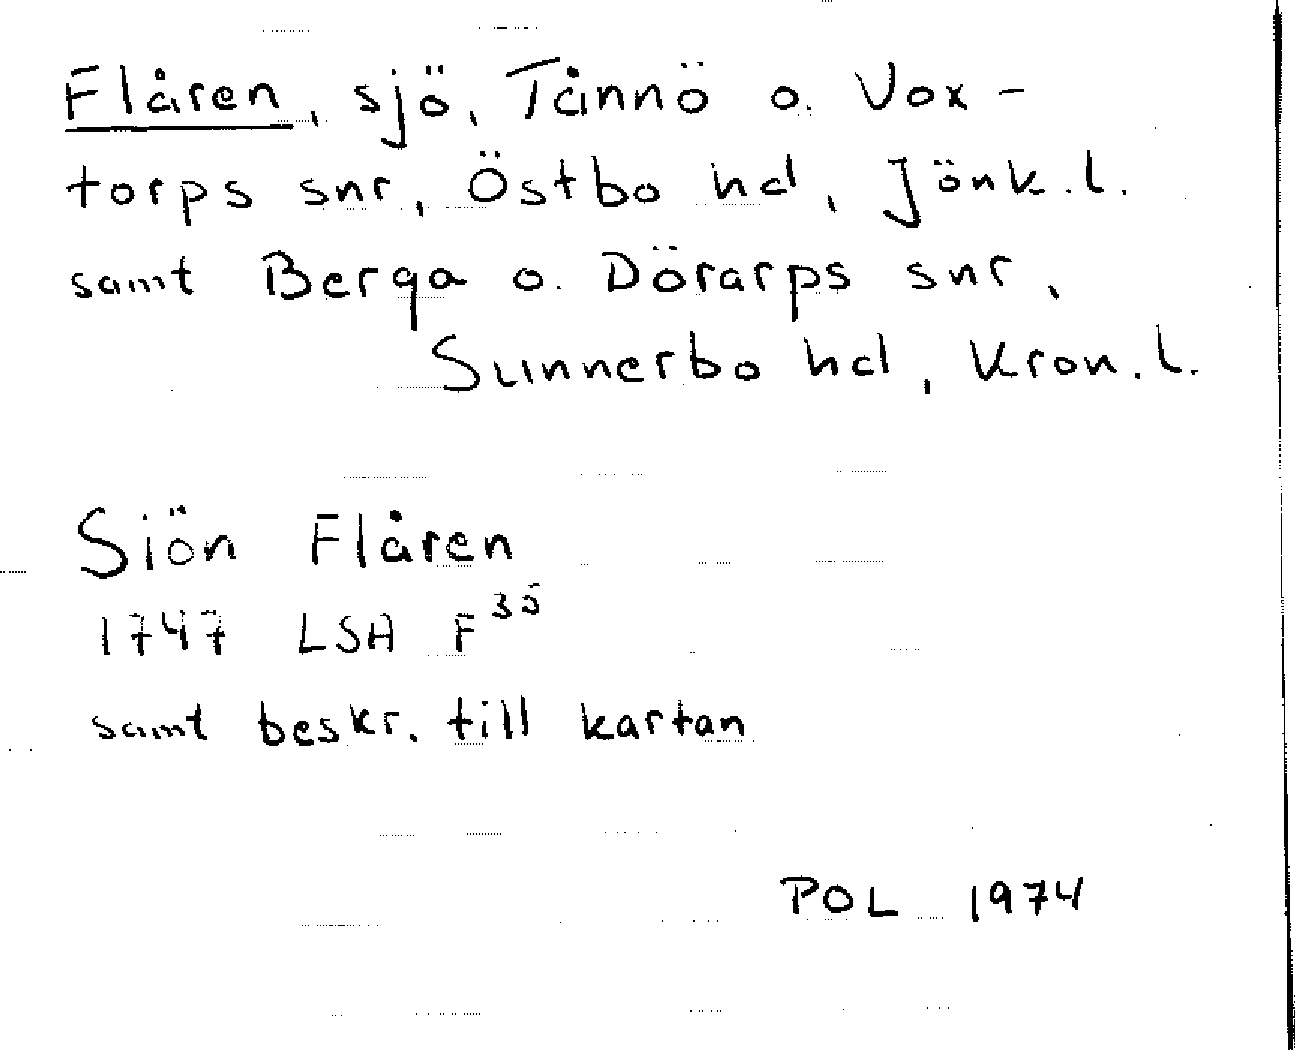 Flåren, sjö, Tånnö o. Vox-
torps snr, Östbo hd, Jönk.l.
samt Berga o. Dörarps snr,
Sunnerbo hd, Kron.l.
Siön Flåren
1747 LSA F 35
samt beskr. till kartan
POL 1974